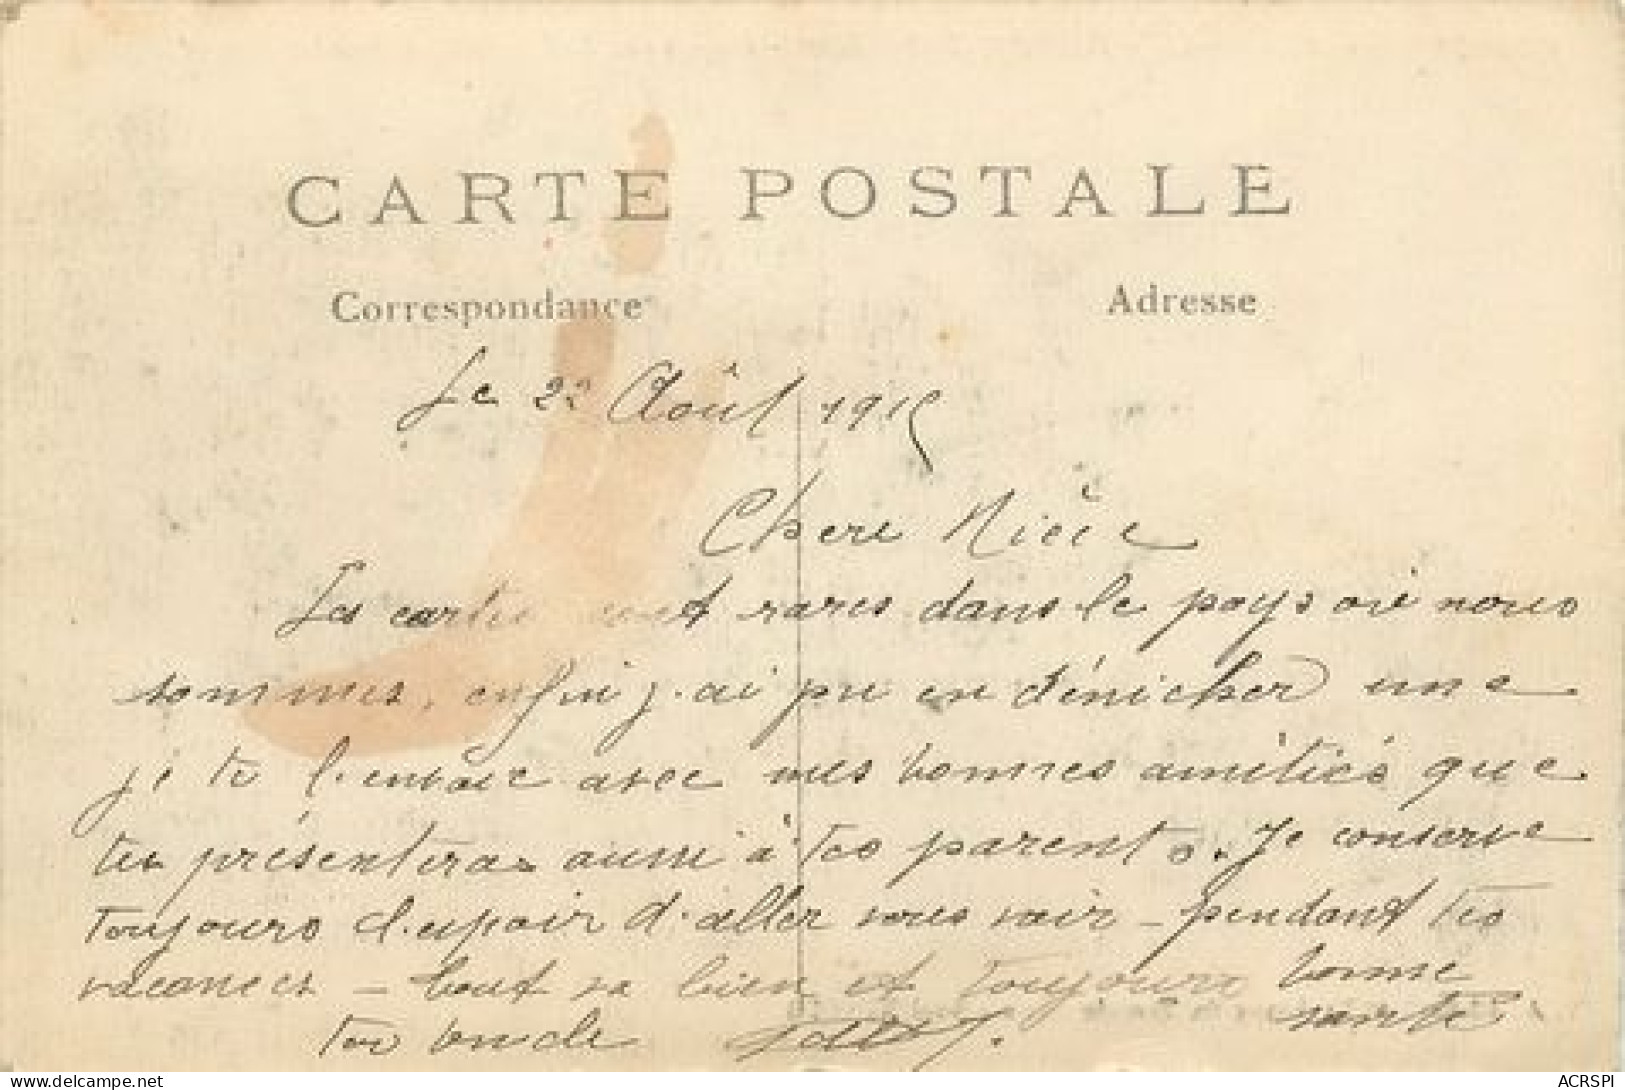 CARTE POSTALE
Correspondance
Adresse
Le 22 Août 1915
Chere Nièce
Les cartes sont rares dans le pays où nous
sommes, enfin j'ai pu en dénicher une
je te l'envoie avec mes bonnes amitiés que
tu présenteras aussi à tes parents. Je conserve
toujours l'espoir d'aller vous voir - pendant tes
vacances - tout va bien et toujours bonne
santé
ton oncle
delcampe.net
ACRSPI